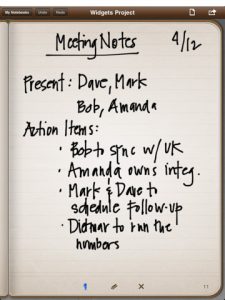 My Notebooks Undo Redo Widgets Project
Meeting Notes 4/12
Present: Dave, Mark
Bob, Amanda
Action Items:
· Bob to sync w/ UK
· Amanda owns integ.
· Mark & Dave to
schedule follow-up
· Dietmar to run the
numbers
11